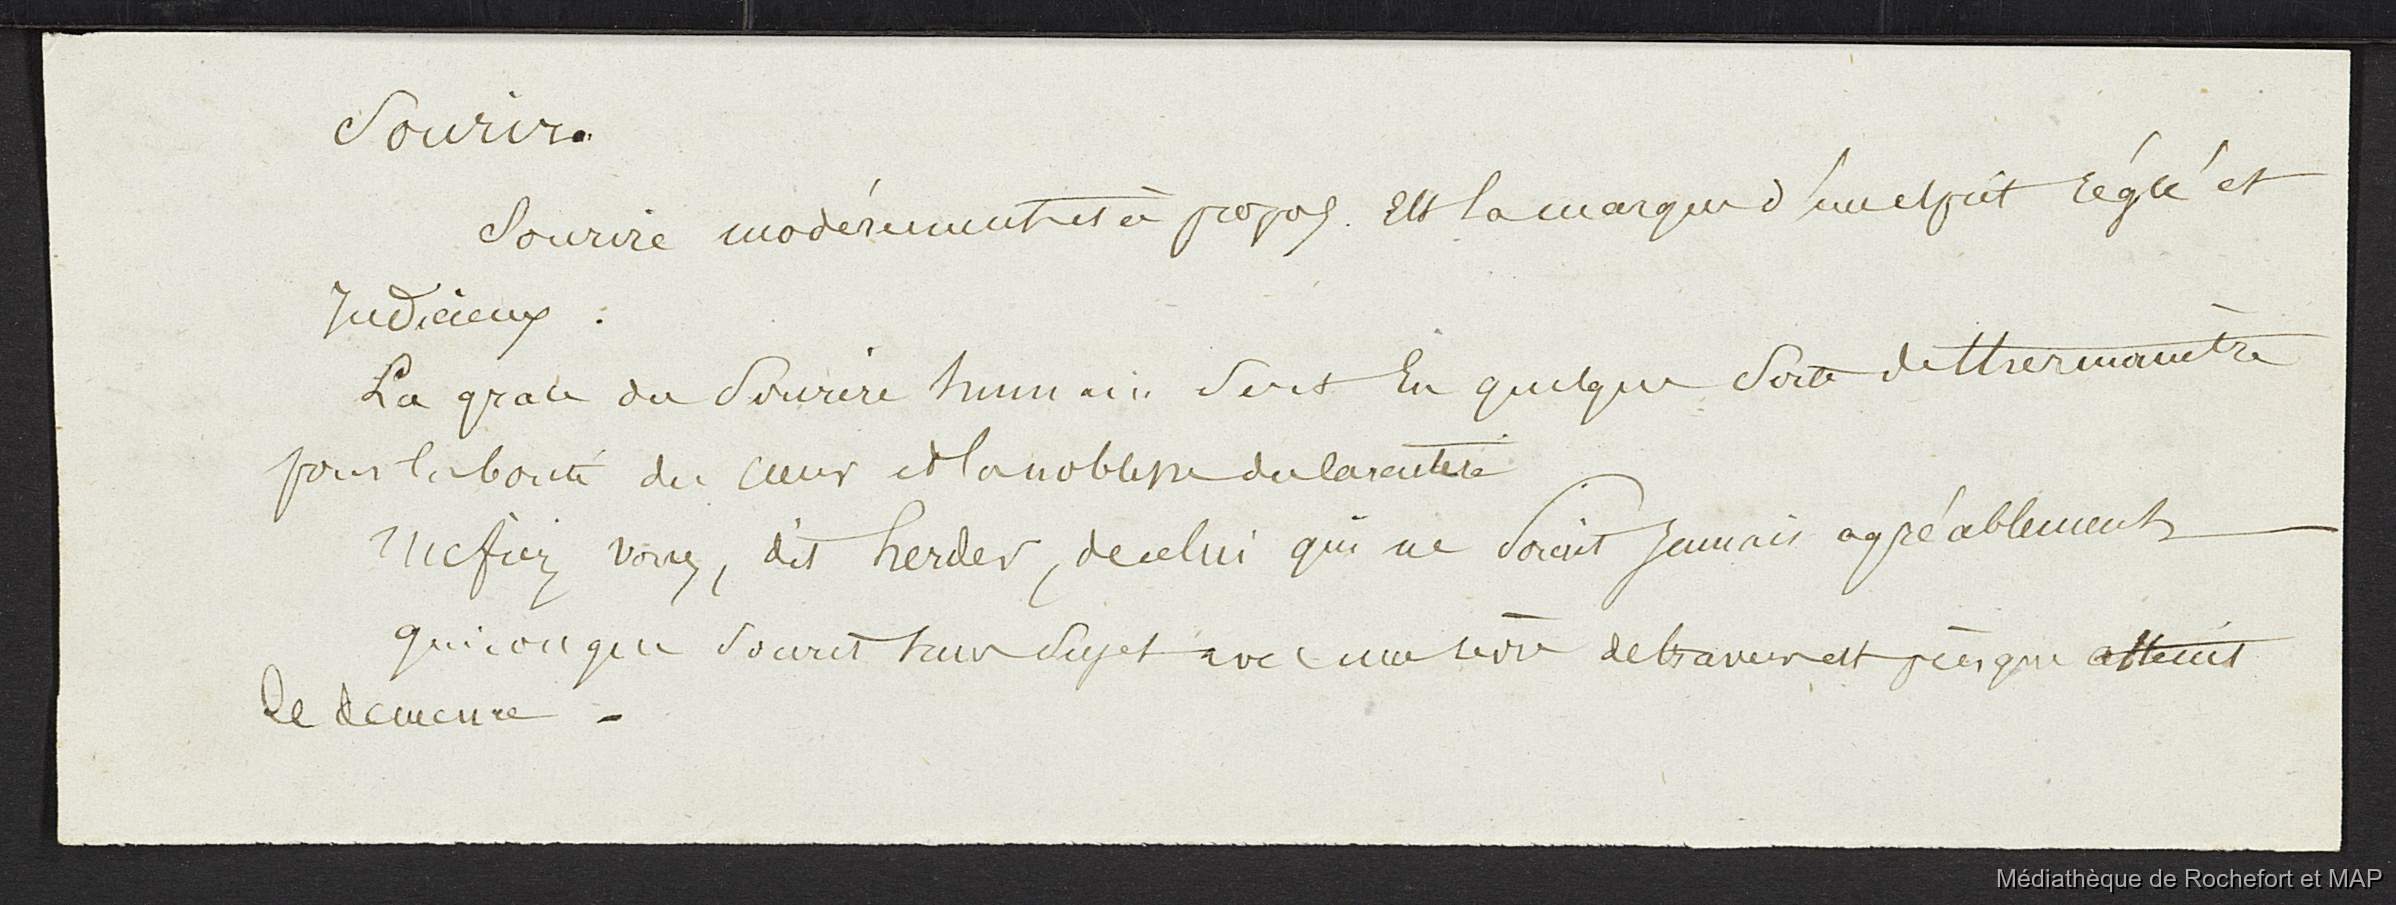 Sourire
Sourire modérément et à propos. Est la marque d'un esprit réglé et
Judicieux :
La grace du Sourire humain Sert En quelque Sorte de thermomètre
pour la bonté du cœur et la noblesse du caractère
Mefiez vous, dit herder, de celui qui ne Sourit Jamais agréablement
quiconque Sourit Sans Sujet avec une lèvre de travers est presque atteint
De demence -
Médiathèque de Rochefort et MAP